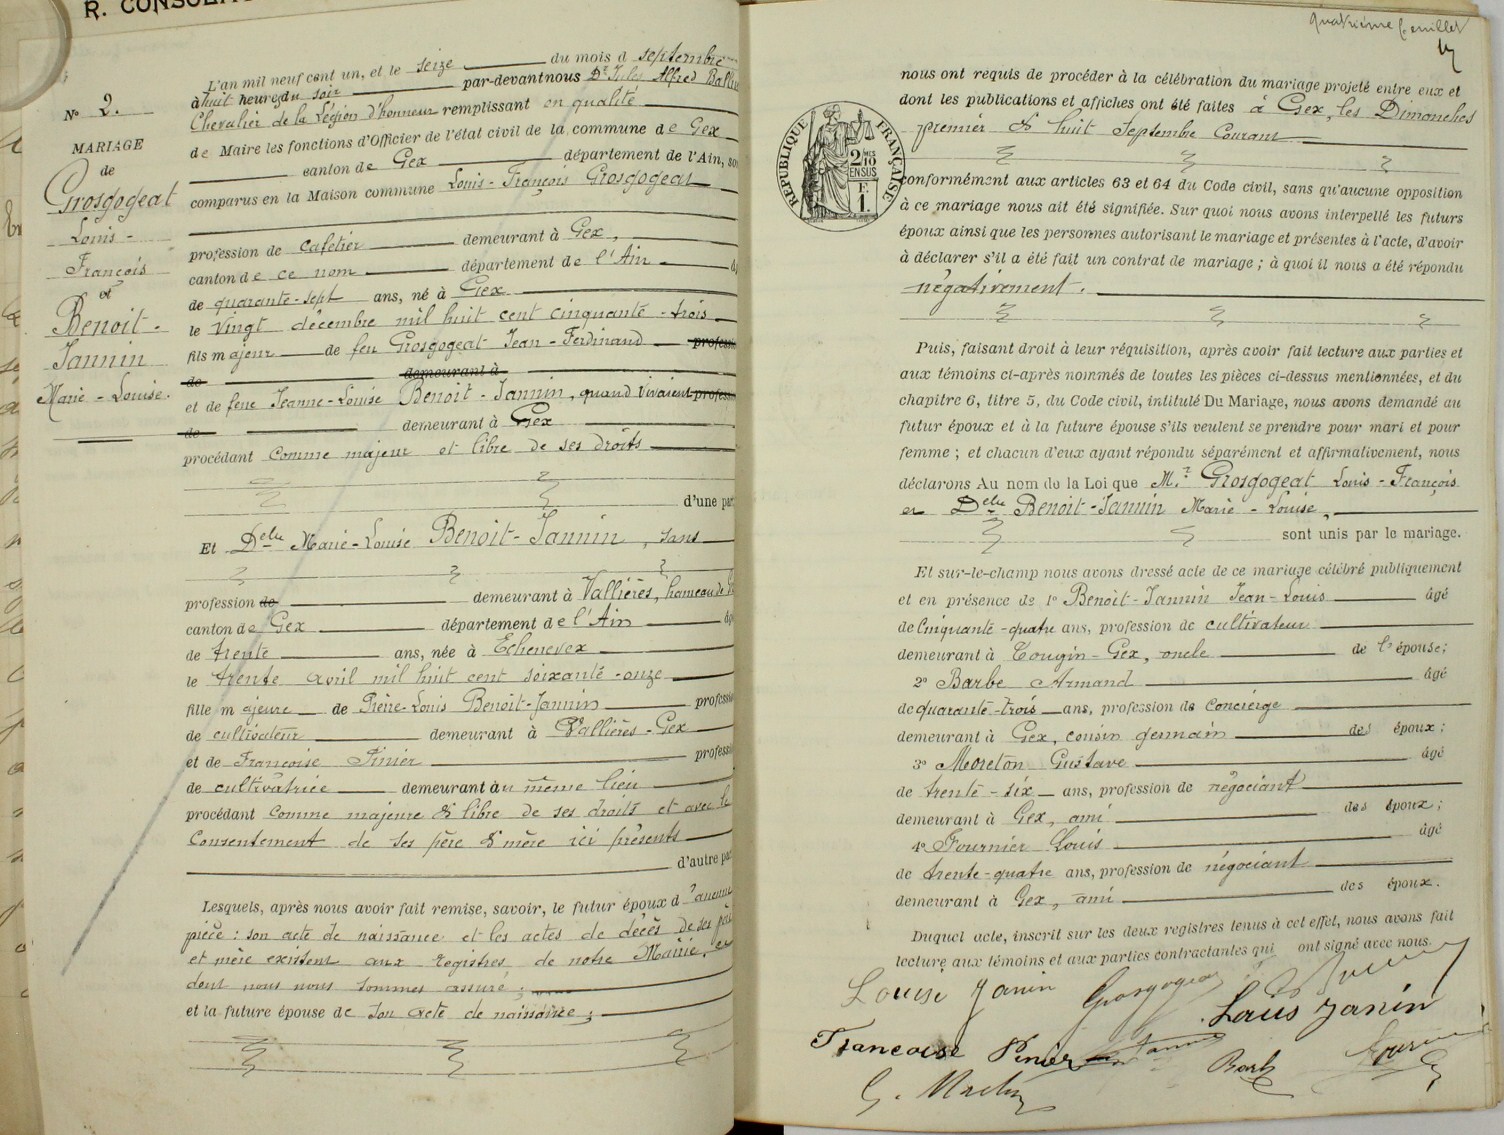 R. CONSOL
N° 2.
MARIAGE
de
Grosgogeat
Louis-
François
et
Benoit-
Jannin
Marie-Louise.
L'an mil neuf cent un, et le seize du mois d septembre
à huit heures du soir par-devant nous Dr Jules Alfred
Chevalier de la Légion d'honneur remplissant en qualité
de Maire les fonctions d'Officier de l'état civil de la commune de Gex
canton de Gex département de l'Ain,
comparus en la Maison commune Louis-François Grosgogeat
profession de cafetier demeurant à Gex,
canton de ce nom département de l'Ain
de quarante-sept ans, né à Gex
le vingt décembre mil huit cent cinquante-trois
fils majeur de feu Grosgogeat Jean-Ferdinand profess
de demeurant à
et de feue Jeanne-Louise Benoit-Jannin, quand vivaient profess
de demeurant à Gex
procédant comme majeur et libre de ses droits
d'une par
Et Delle Marie-Louise Benoit-Jannin, sans
profession de demeurant à Vallières, hameau de
canton de Gex département de l'Ain
de trente ans, née à Echenevex
le trente avril mil huit cent soixante-onze
fille majeure de Pierre-Louis Benoit-Jannin profession
de cultivateur demeurant à Vallières-Gex
et de Françoise Pinier professi
de cultivatrice demeurant au même lieu
procédant comme majeure & libre de ses droits et avec le
consentement de ses père & mère ici présents
d'autre par
Lesquels, après nous avoir fait remise, savoir, le futur époux d'aucune
pièce : son acte de naissance et les actes de décès de ses père
et mère existent aux registres de notre Mairie, ce
dont nous nous sommes assuré ;
et la future épouse de son acte de naissance ;
quatrième feuillet
nous ont requis de procéder à la célébration du mariage projeté entre eux et
dont les publications et affiches ont été faites à Gex, les Dimanches
premier & huit Septembre Courant
RÉPUBLIQUE FRANÇAISE
2 MES 10
EN SUS
F.
1.
conformément aux articles 63 et 64 du Code civil, sans qu'aucune opposition
à ce mariage nous ait été signifiée. Sur quoi nous avons interpellé les futurs
époux ainsi que les personnes autorisant le mariage et présentes à l'acte, d'avoir
à déclarer s'il a été fait un contrat de mariage ; à quoi il nous a été répondu
négativement.
Puis, faisant droit à leur réquisition, après avoir fait lecture aux parties et
aux témoins ci-après nommés de toutes les pièces ci-dessus mentionnées, et du
chapitre 6, titre 5, du Code civil, intitulé Du Mariage, nous avons demandé au
futur époux et à la future épouse s'ils veulent se prendre pour mari et pour
femme ; et chacun d'eux ayant répondu séparément et affirmativement, nous
déclarons Au nom de la Loi que M.r Grosgogeat Louis-François
et Delle Benoit-Jannin Marie-Louise,
sont unis par le mariage.
Et sur-le-champ nous avons dressé acte de ce mariage célébré publiquement
et en présence de 1° Benoit-Jannin Jean-Louis âgé
de Cinquante-quatre ans, profession de cultivateur
demeurant à Tougin-Gex, oncle de l'épouse;
2° Barbe Armand âgé
de quarante-trois ans, profession de concierge
demeurant à Gex, cousin germain des époux;
3° Moreton Gustave âgé
de trente-six ans, profession de négociant
demeurant à Gex, ami des époux;
4° Fournier Louis âgé
de trente-quatre ans, profession de négociant
demeurant à Gex, ami des époux.
Duquel acte, inscrit sur les deux registres tenus à cet effet, nous avons fait
lecture aux témoins et aux parties contractantes qui ont signé avec nous.
Louise Janin Grosgogeat
Louis Janin
Francoise Pinier Barbe